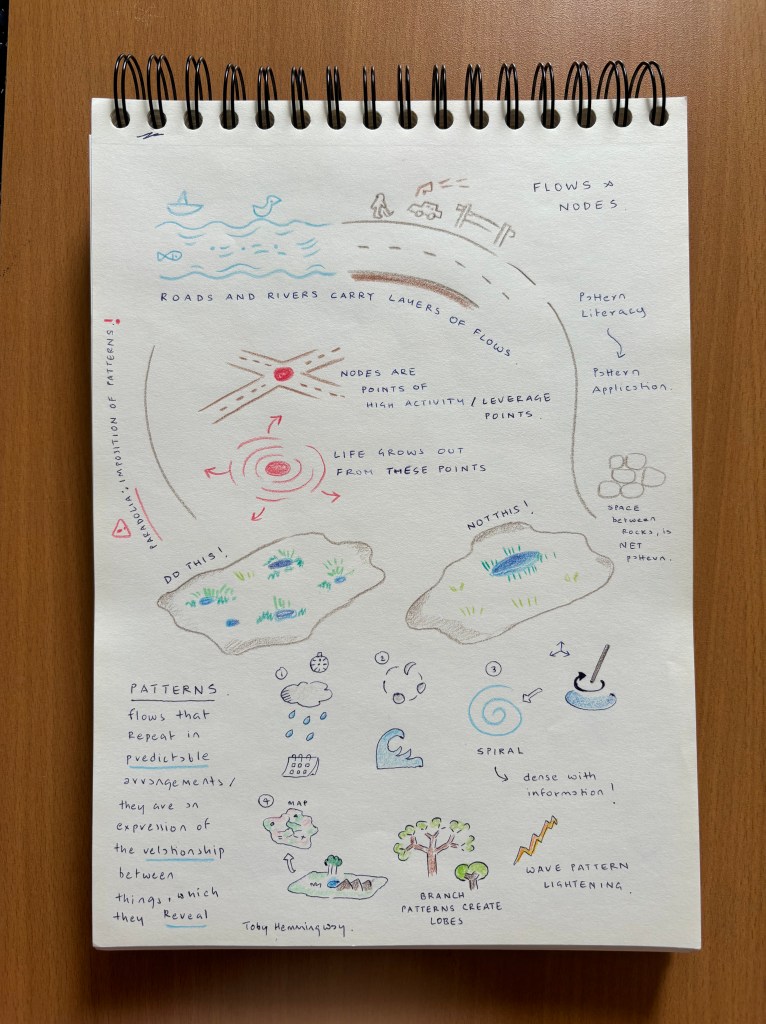 FLOWS &
NODES.
ROADS AND RIVERS CARRY LAYERS OF FLOWS.
Pattern
Literacy
Pattern
Application.
PARADOLIA: IMPOSITION OF PATTERNS!
!
NODES ARE
POINTS OF
HIGH ACTIVITY / LEVERAGE
POINTS.
LIFE GROWS OUT
FROM THESE POINTS
SPACE
between
ROCKS, is
NET
pattern.
DO THIS!
NOT THIS!
PATTERNS.
flows that
REPEAT in
predictable
arrangements/
they are an
expression of
the relationship
between
things, which
they Reveal
1
2
3
SPIRAL
dense with
information!
4 MAP
BRANCH
PATTERNS CREATE
LOBES
WAVE PATTERN
LIGHTENING.
Toby Hemmingway.